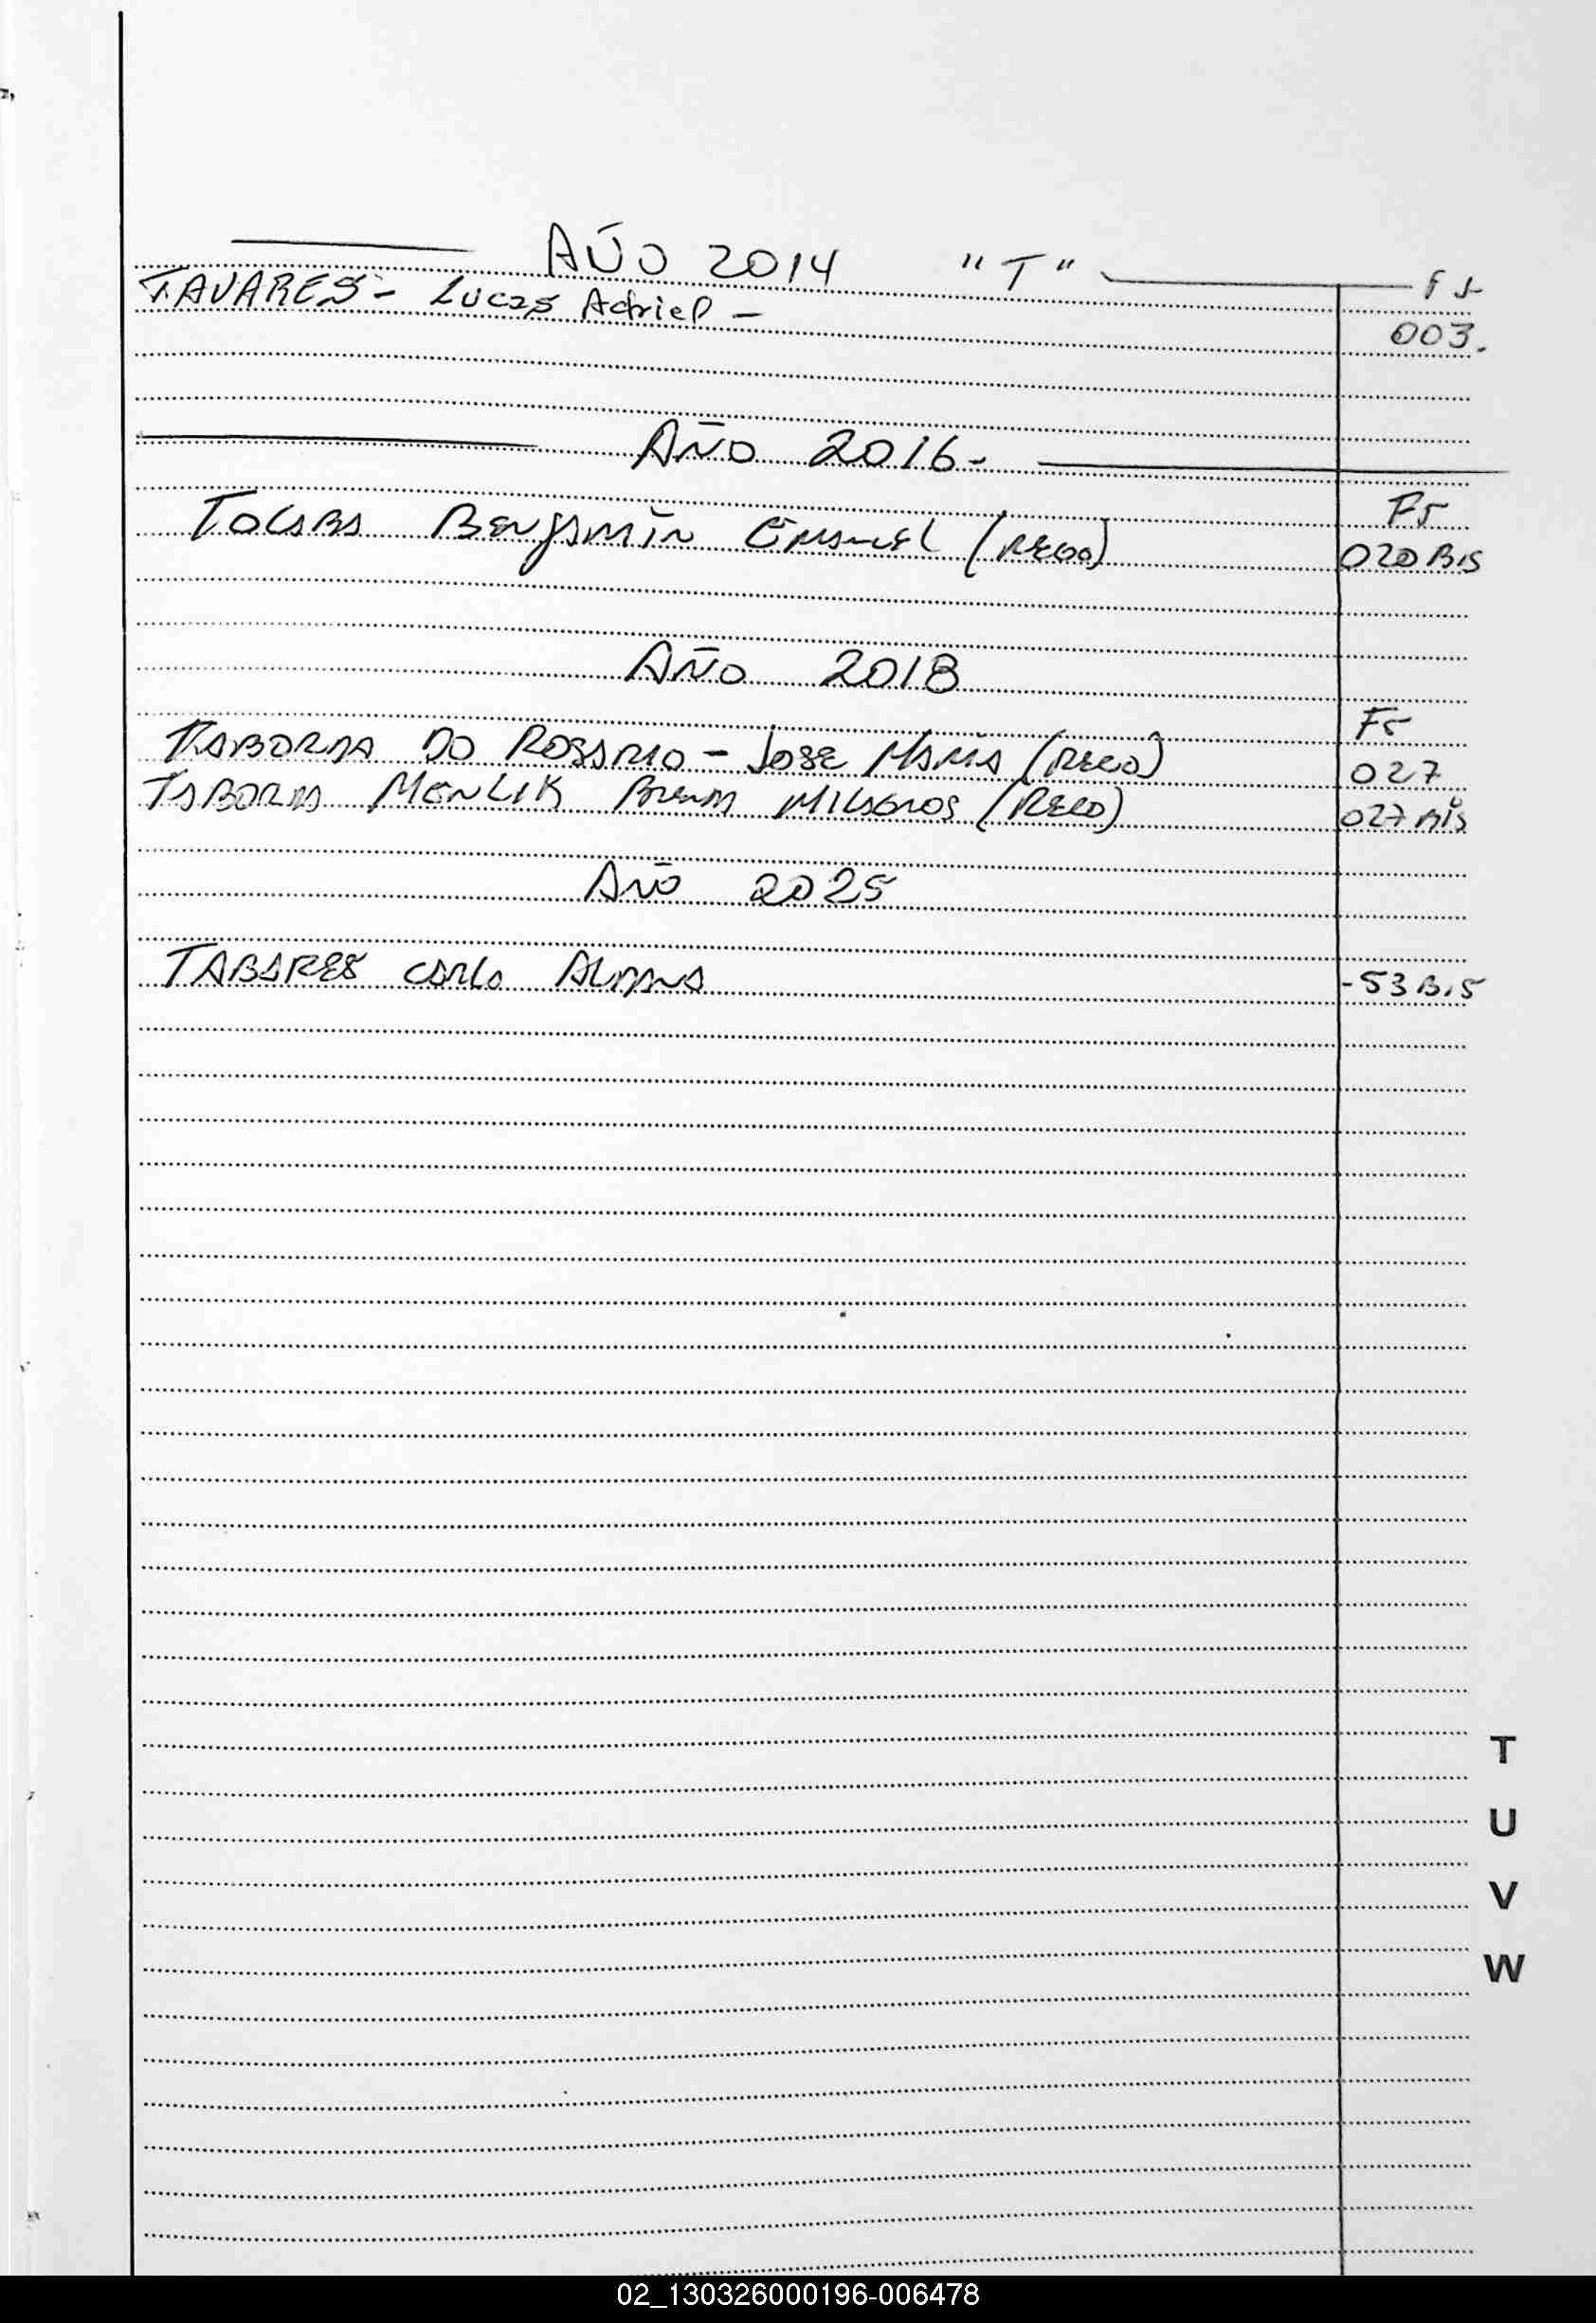 AÑO 2014 "T" FJ
TAVARES - Lucas Adriel - 003.
AÑO 2016-
FJ
TOLABA BENJAMÍN EMANUEL (RECO) 020 BIS
AÑO 2018
FJ
TABORDA DO ROSARIO - JOSE MARÍA (RECO) 027
TABORDA MENLIK MILAGROS (RECO) 027 BIS
AÑO 2025
TABARES CARLO -53 BIS
T
U
V
W
02_130326000196-006478